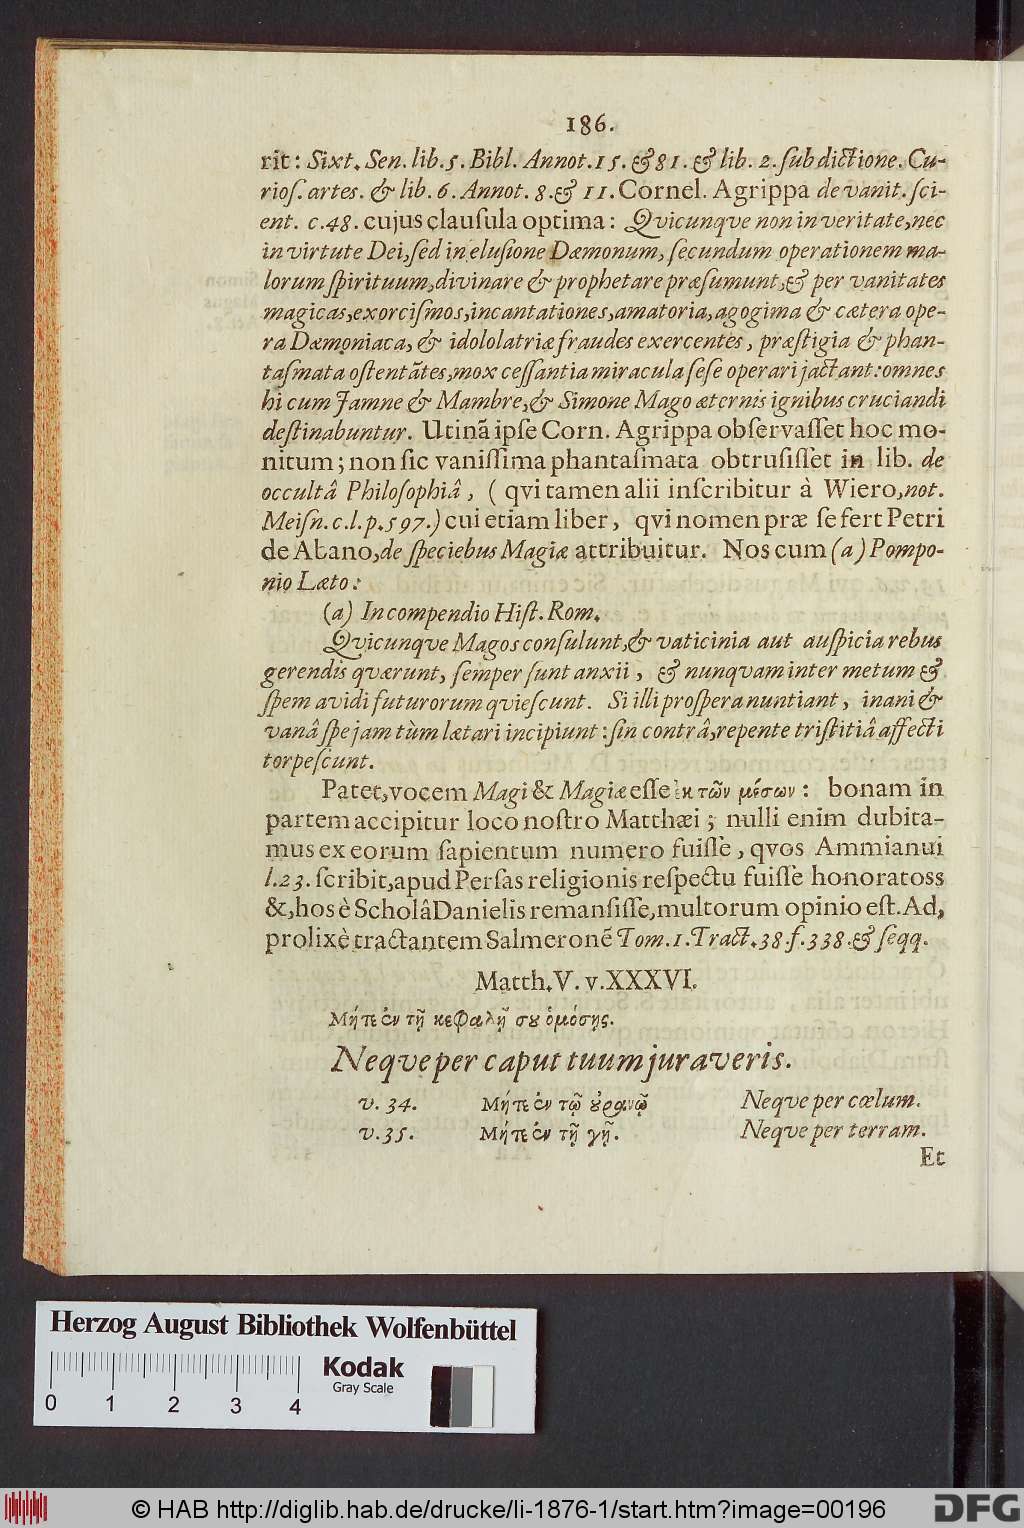 186.
rit: Sixt. Sen. lib. 5. Bibl. Annot. 15. & 81. & lib. 2. ſub dictione. Cu-
rioſ. artes. & lib. 6. Annot. 8. & 11. Cornel. Agrippa de vanit. ſci-
ent. c. 48. cujus clauſula optima: Qvicunqve non in veritate, nec
in virtute Dei, ſed in eluſione Dæmonum, ſecundum operationem ma-
lorum ſpirituum, divinare & prophetare præſumunt, & per vanitates
magicas, exorciſmos, incantationes, amatoria, agogima & cætera ope-
ra Dæmoniaca, & idololatriæ fraudes exercentes, præſtigia & phan-
taſmata oſtentātes, mox ceſſantia miracula ſeſe operari jactant: omnes
hi cum Jamne & Mambre, & Simone Mago æternis ignibus cruciandi
deſtinabuntur. Utinā ipſe Corn. Agrippa obſervaſſet hoc mo-
nitum; non ſic vaniſſima phantaſmata obtruſiſſet in lib. de
occultâ Philoſophiâ, ( qvi tamen alii inſcribitur à Wiero, not.
Meiſn. c. l. p. 597.) cui etiam liber, qvi nomen præ ſe fert Petri
de Abano, de ſpeciebus Magiæ attribuitur. Nos cum (a) Pompo-
nio Læto:
(a) In compendio Hiſt. Rom.
Qvicunqve Magos conſulunt, & vaticinia aut auſpicia rebus
gerendis qværunt, ſemper ſunt anxii, & nunqvam inter metum &
ſpem avidi futurorum qvieſcunt. Si illi proſpera nuntiant, inani &
vanâ ſpe jam tùm lætari incipiunt: ſin contrâ, repente triſtitiâ affecti
torpeſcunt.
Patet, vocem Magi & Magiæ eſſe ἐκ τῶν μέσων: bonam in
partem accipitur loco noſtro Matthæi; nulli enim dubita-
mus ex eorum ſapientum numero fuiſſe, qvos Ammianui
l. 23. ſcribit, apud Perſas religionis reſpectu fuiſſe honoratoss
&, hos è Scholâ Danielis remanſiſſe, multorum opinio eſt. Ad,
prolixè tractantem Salmeronē Tom. 1. Tract. 38. f. 338. & ſeqq.
Matth. V. v. XXXVI.
Μήτε ἐν τῇ κεφαλῇ σου ὀμόσῃς.
Neqve per caput tuum juraveris.
v. 34. Μήτε ἐν τῷ οὐρανῷ Neqve per cœlum.
v. 35. Μήτε ἐν τῇ γῇ. Neqve per terram.
Et
Herzog August Bibliothek Wolfenbüttel
Kodak
Gray Scale
0 1 2 3 4
© HAB http://diglib.hab.de/drucke/li-1876-1/start.htm?image=00196
DFG